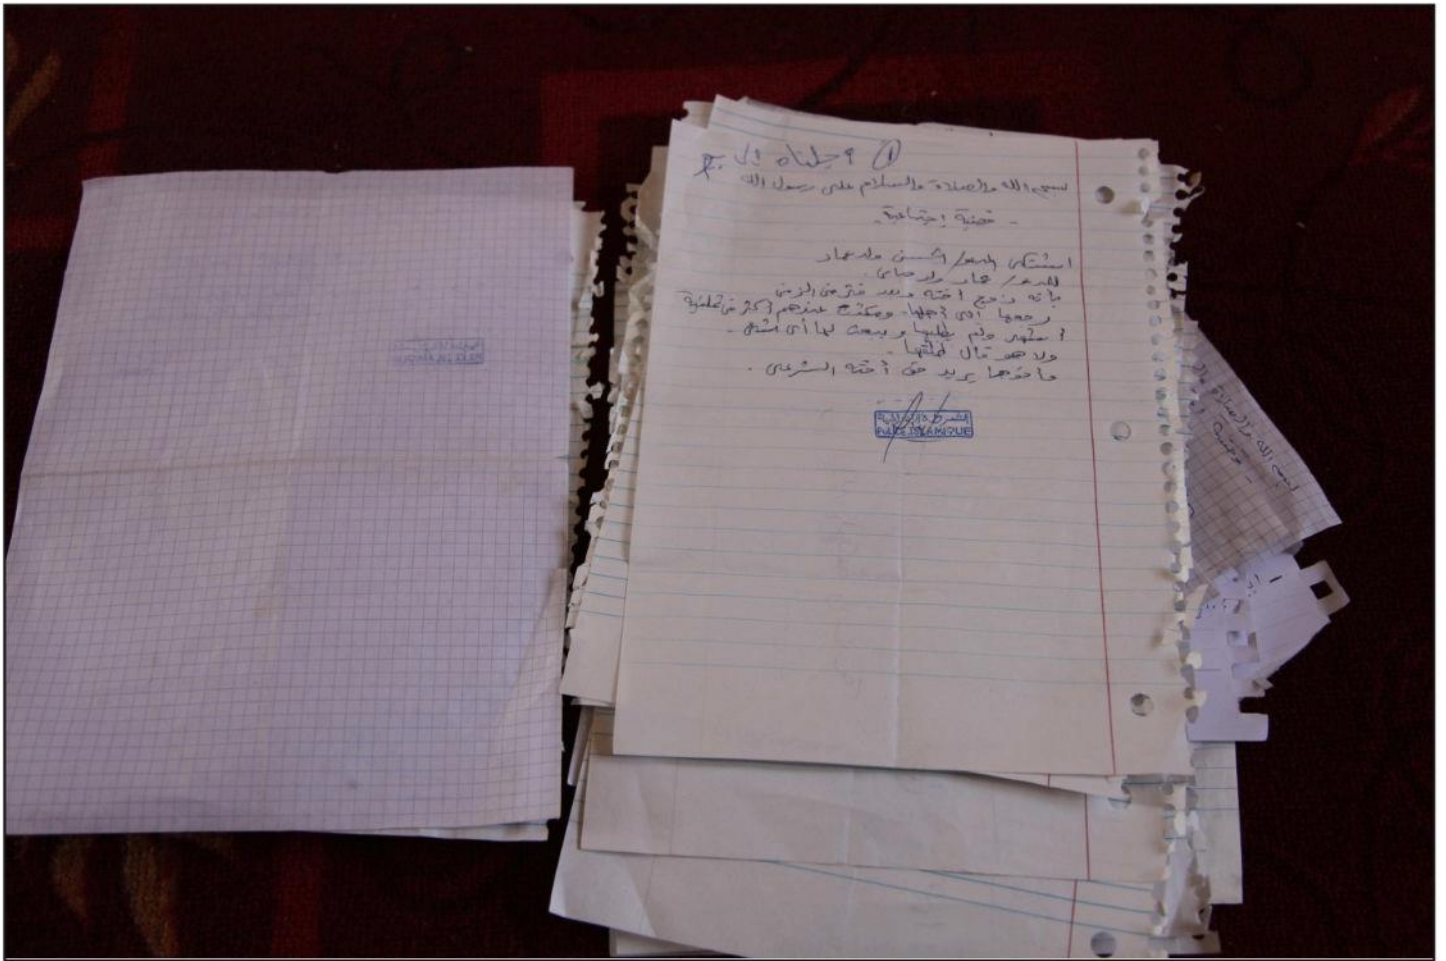 بسم الله والصلاة والسلام على رسول الله
- قضية إجتماعية -
اشتكى المدعو/ الحسن ولد عمار
المدعو/ عمار ولد
بأنه زوج أخته وبعد فتر من الزمن
رجعها الى أهلها ومكثت عندهم أكثر من ثمانية
أشهر ولم يطلبها ويبعث لها أى شئ -
ولا هو قال طلقتها -
فأخوها يريد حق أخته الشرعى .
الشرطة الإسلامية
POLICE ISLAMIQUE
بسم الله والصلاة